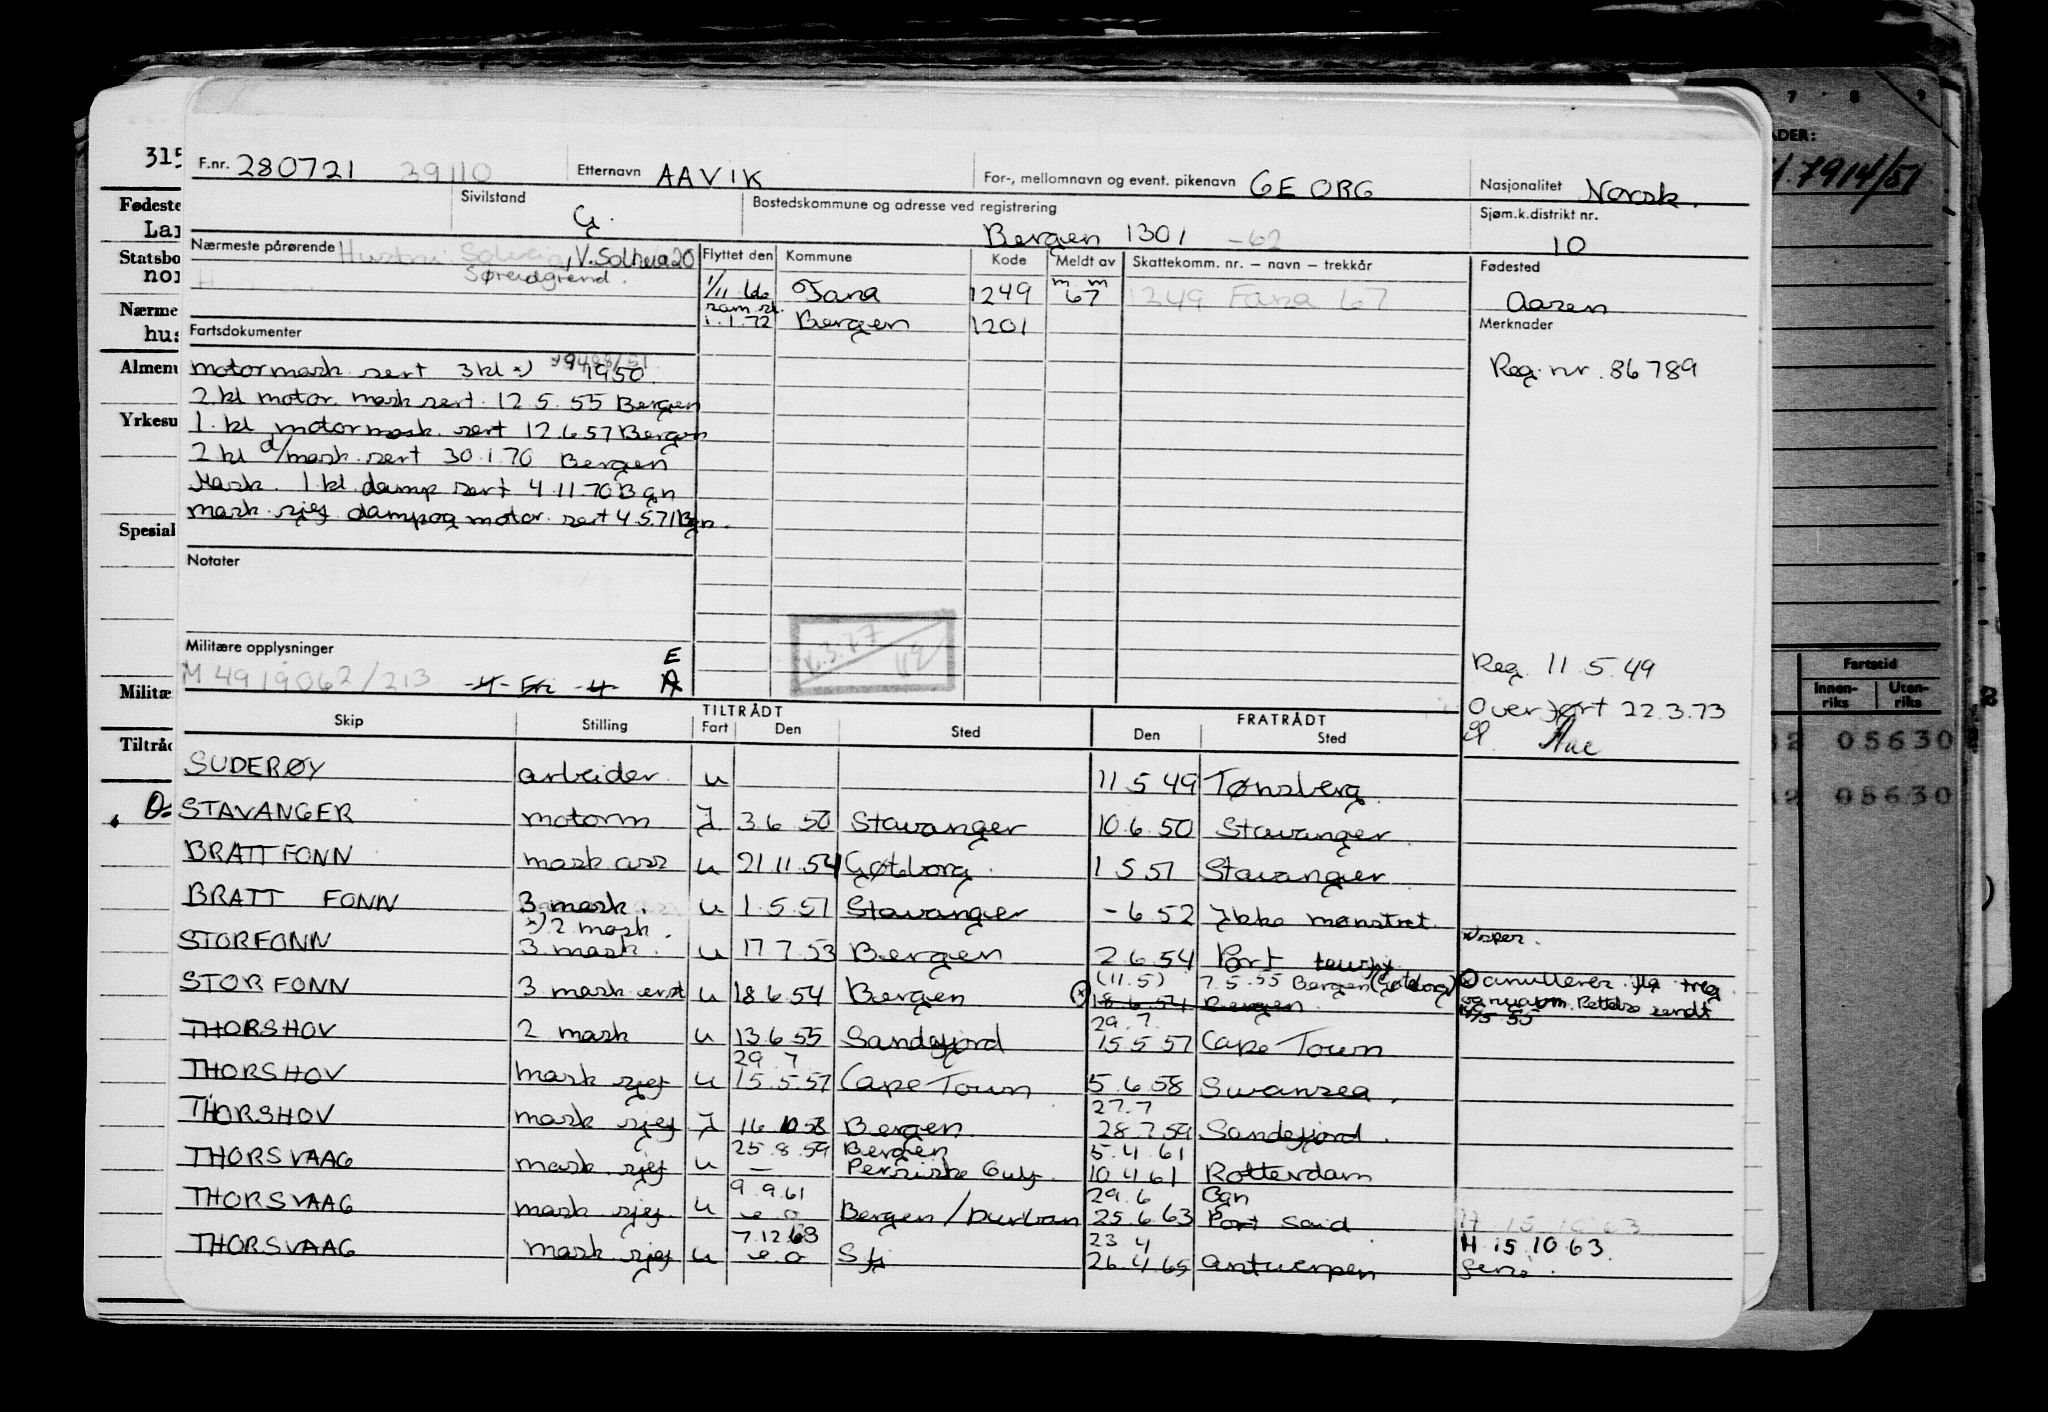 315
F.nr. 280721 39110 Etternavn AAVIK For-, mellomnavn og event. pikenavn GEORG Nasjonalitet Norsk.
Sivilstand G. Bostedskommune og adresse ved registrering Bergen 1301 -62 Sjøm.k.distrikt nr. 10
Nærmeste pårørende Hustru: Solveig, V. Solheia 20
Søreidgrend.
Flyttet den Kommune Kode Meldt av Skattekomm. nr. – navn – trekkår Fødested
1/11 66 Fana 1249 m m 67 1249 Fana 67 Aasen
1.1.72 Bergen 1201
Merknader
Reg. nr. 86789
Fartsdokumenter
motormask. sert 3 kl 1950.
2 kl motor. mask sert. 12.5.55 Bergen
1. kl motormask. sert 12.6.57 Bergen
2 kl d/mask. sert 30.1.70 Bergen
Mask. 1 kl damp sert 4.11.70 Bgn
mask. sjef damp og motor. sert 4.5.71 Bgn.
Notater
Militære opplysninger E
M 4919062/213 -4- Fri -4- A
Reg. 11.5.49
Overført 22.3.73
TILTRÅDT FRATRÅDT
Skip Stilling Fart Den Sted Den Sted
SUDERØY arbeider u 11.5.49 Tønsberg
STAVANGER motorm I 3.6.50 Stavanger 10.6.50 Stavanger
BRATTFONN mask ass u 21.11.54 Gøtborg 1.5.51 Stavanger
BRATT FONN 3 mask. u 1.5.51 Stavanger - 6.52 Ikke mønstret.
2 mask.
STORFONN 3 mask. u 17.7.53 Bergen 2.6.54 Port
(11.5) 7.5.55 Bergen (Gøteborg)
STORFONN 3 mask u 18.6.54 Bergen 18.6.54 Bergen
29.7.
THORSHOV 2 mask u 13.6.55 Sandefjord 15.5.57 Cape Town
29.7
THORSHOV mask sjef u 15.5.57 Cape Town 5.6.58 Swansea.
27.7
THORSHOV mask sjef I 16.10.58 Bergen. 28.7.59 Sandefjord.
25.8.59 Bergen 5.4.61
THORSVAAG mask. sjef u — Persiske Gulf. 10.4.61 Rotterdam
9.9.61 29.6 Bgn
THORSVAAG mask. sjef u Bergen / Durban 25.6.63 Port Said
7.12.63 23.4 H 15.10.63.
THORSVAAG mask sjef u 26.4.65 Antwerpen ferie.
Fødeste
Lar
Statsbo
nor
Nærme
hus
Almenu
Yrkesu
Spesial
Militæ
Tiltråd
7 8 9
ADER:
7914/51
Fartstid
Innen-riks Uten-riks
05630
05630